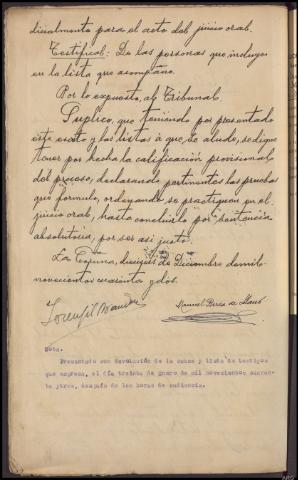 dividualmente para el acto del juicio oral.
Testifical: De las personas que incluyo
en la lista que acompaño.
Por lo expuesto, al Tribunal
Suplico, que teniendo por presentado
este escrito y las listas á que se alude, se digne
tener por hecha la calificación provisional
del proceso, declarando pertinentes las pruebas
que formulo, ordenando se practiquen en el
juicio oral, hasta concluirlo por sentencia
absolutoria, por ser así justo.
La Coruña, de Diciembre de mil
novecientos cuarenta y dos.
Manuel Perez
Nota.
Presentado con devolución de la causa y lista de testigos
que expresa, el día treinta de enero de mil novecientos cuaren-
ta ytres, después de las horas de audiencia.